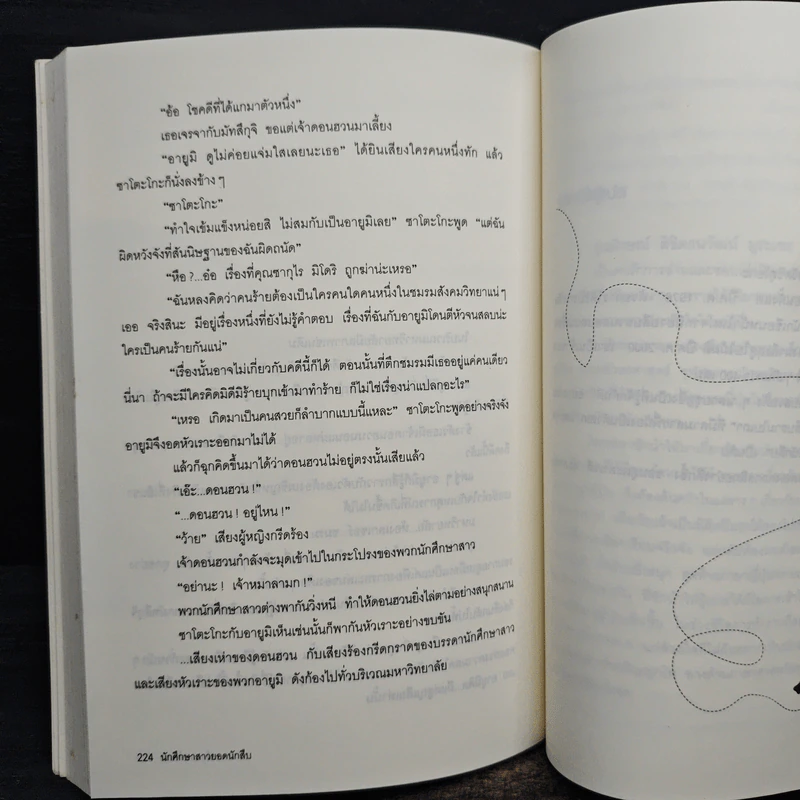 “อ้อ โชคดีที่ได้แกมาตัวหนึ่ง”
เธอเจรจากับมัทสึกุจิ ขอแต่เจ้าดอนฮวนมาเลี้ยง
“อายูมิ ดูไม่ค่อยแจ่มใสเลยนะเธอ” ได้ยินเสียงใครคนหนึ่งทัก แล้ว
ซาโตะโกะก็นั่งลงข้าง ๆ
“ซาโตะโกะ”
“ทำใจเข้มแข็งหน่อยสิ ไม่สมกับเป็นอายูมิเลย” ซาโตะโกะพูด “แต่ฉัน
ผิดหวังจังที่สันนิษฐานของฉันผิดถนัด”
“หือ ?...อ๋อ เรื่องที่คุณซากุไร มิโดริ ถูกฆ่าน่ะเหรอ”
“ฉันหลงคิดว่าคนร้ายต้องเป็นใครคนใดคนหนึ่งในชมรมสังคมวิทยาแน่ ๆ
เออ จริงสินะ มีอยู่เรื่องหนึ่งที่ยังไม่รู้คำตอบ เรื่องที่ฉันกับอายูมิโดนตีหัวจนสลบน่ะ
ใครเป็นคนร้ายกันแน่”
“เรื่องนั้นอาจไม่เกี่ยวกับคดีนี้ก็ได้ ตอนนั้นที่ตึกชมรมมีเธออยู่แค่คนเดียว
นี่นา ถ้าจะมีใครคิดมิดีมิร้ายบุกเข้ามาทำร้าย ก็ไม่ใช่เรื่องน่าแปลกอะไร”
“เหรอ เกิดมาเป็นคนสวยก็ลำบากแบบนี้แหละ” ซาโตะโกะพูดอย่างจริงจัง
อายูมิจึงอดหัวเราะออกมาไม่ได้
แล้วก็ฉุกคิดขึ้นมาได้ว่าดอนฮวนไม่อยู่ตรงนั้นเสียแล้ว
“เอ๊ะ...ดอนฮวน !”
“...ดอนฮวน ! อยู่ไหน !”
“ว้าย” เสียงผู้หญิงกรีดร้อง
เจ้าดอนฮวนกำลังจะมุดเข้าไปในกระโปรงของพวกนักศึกษาสาว
“อย่านะ ! เจ้าหมาลามก !”
พวกนักศึกษาสาวต่างพากันวิ่งหนี ทำให้ดอนฮวนยิ่งไล่ตามอย่างสนุกสนาน
ซาโตะโกะกับอายูมิเห็นเช่นนั้นก็พากันหัวเราะอย่างขบขัน
...เสียงเห่าของดอนฮวน กับเสียงร้องกรีดกราดของบรรดานักศึกษาสาว
และเสียงหัวเราะของพวกอายูมิ ดังก้องไปทั่วบริเวณมหาวิทยาลัย
224 นักศึกษาสาวยอดนักสืบ